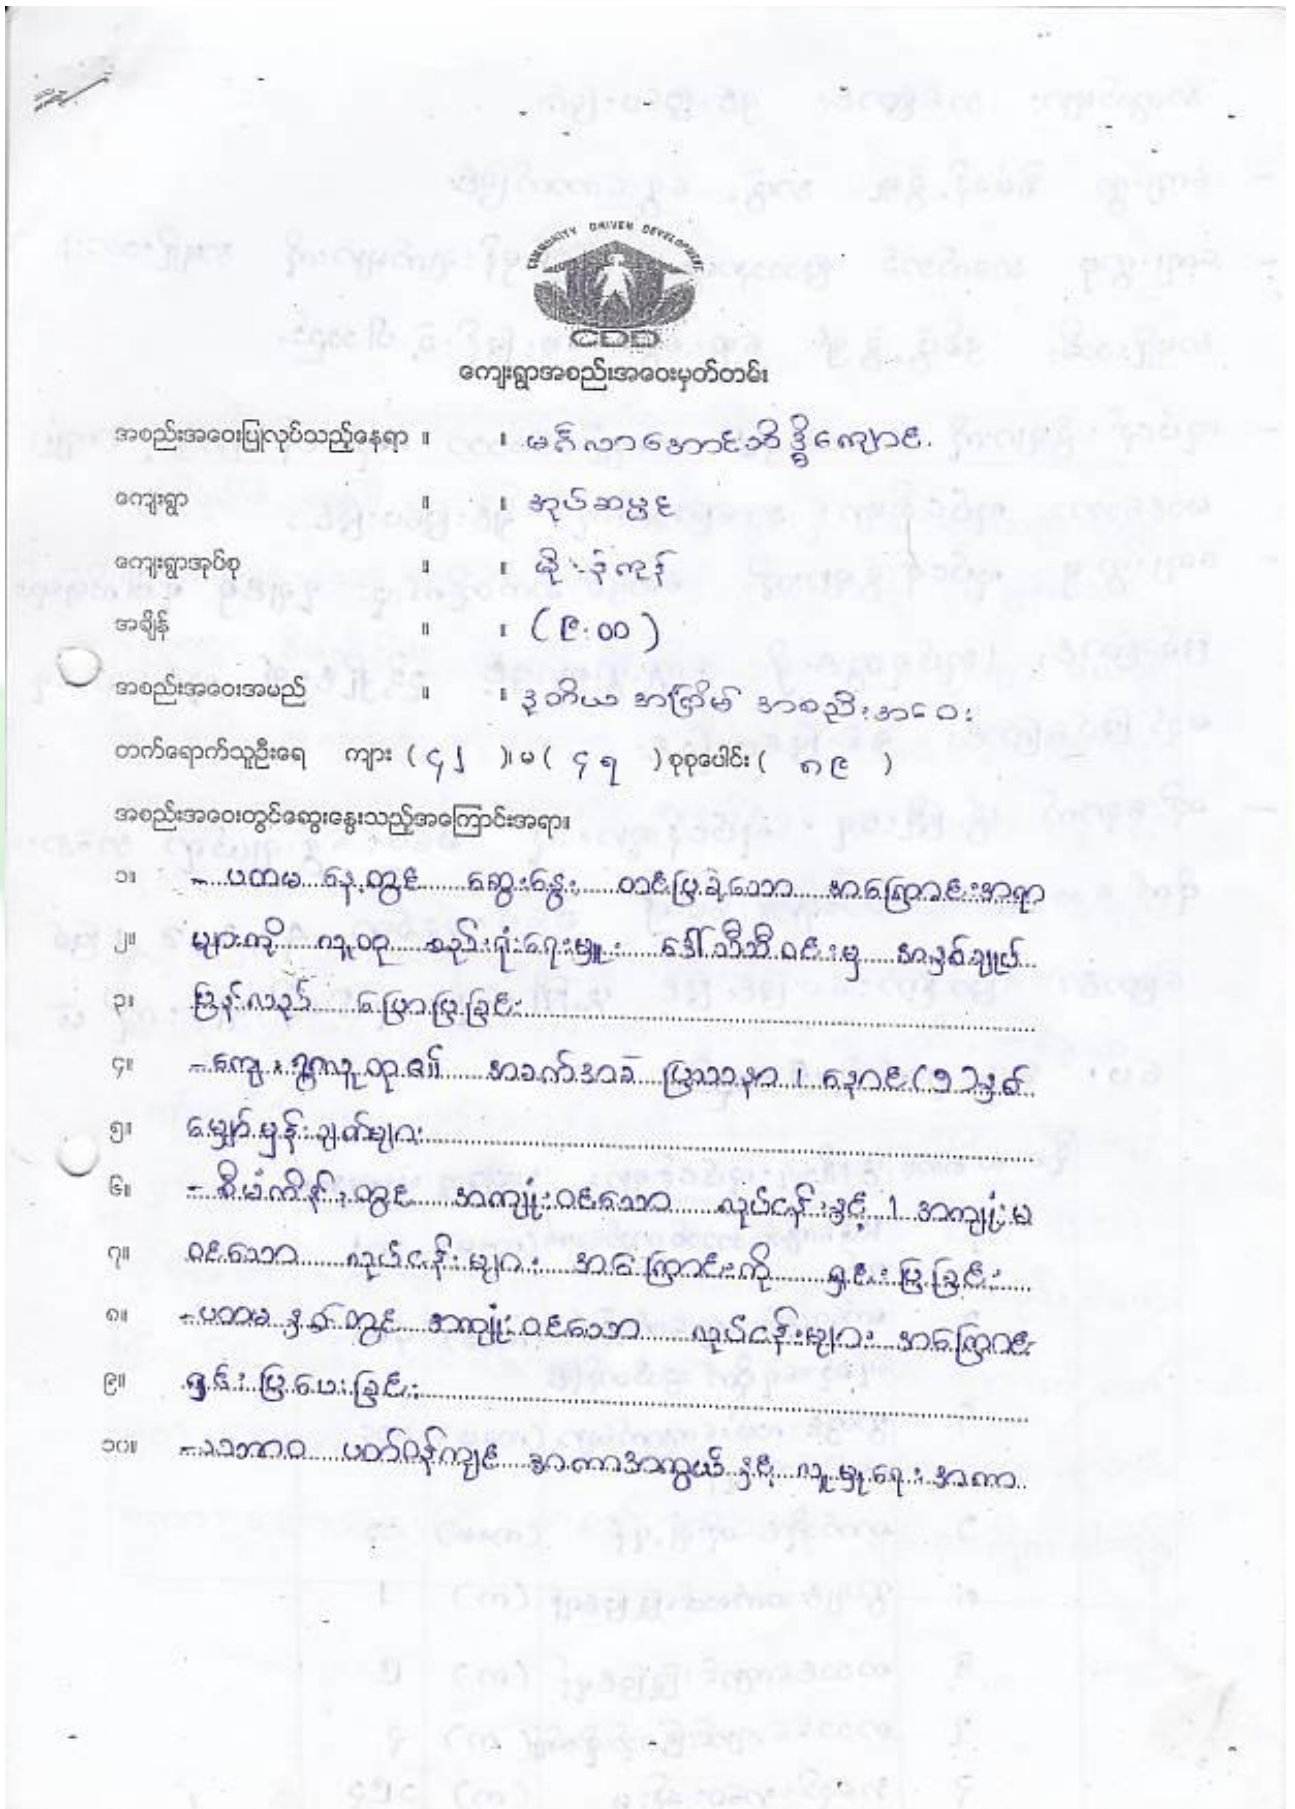 COMMUNITY DRIVEN DEVELOPMENT
CDD
ကျေးရွာအစည်းအဝေးမှတ်တမ်း
အစည်းအဝေးပြုလုပ်သည့်နေရာ ။ ။ မင်္ဂလာအောင်သိဒ္ဓိကျောင်း
ကျေးရွာ ။ ။ အုပ်
ကျေးရွာအုပ်စု ။ ။
အချိန် ။ ။ (၉:၀၀)
အစည်းအဝေးအမည် ။ ။ ဒုတိယ အကြိမ် အစည်းအဝေး
တက်ရောက်သူဦးရေ ကျား (၄၂)၊ မ (၄၇) စုစုပေါင်း (၈၉)
အစည်းအဝေးတွင်ဆွေးနွေးသည့်အကြောင်းအရာ၊
၁။ - ပထမ နေ့တွင် ဆွေးနွေး တင်ပြခဲ့သော အကြောင်းအရာ
၂။ များကို လူထု စည်းရုံးရေးမှူး ဒေါ်သီသီဝင်းမှ အနှစ်ချုပ်
၃။ ပြန်လည် ပြောပြခြင်း
၄။ - ကျေးရွာလူထု၏ အခက်အခဲ ပြဿနာ ၊ နောင် (၅) နှစ်
၅။ မျှော်မှန်းချက်များ
၆။ - စီမံကိန်းတွင် အကျုံးဝင်သော လုပ်ငန်းနှင့် ၊ အကျုံးမ
၇။ ဝင်သော လုပ်ငန်းများ အကြောင်းကို ရှင်းပြခြင်း
၈။ - ပထမ နှစ်တွင် အကျုံးဝင်သော လုပ်ငန်းများ အကြောင်း
၉။ ရှင်းပြပေးခြင်း
၁၀။ - သဘာဝ ပတ်ဝန်းကျင် အကာအကွယ် နှင့် လူမှုရေး အကာ